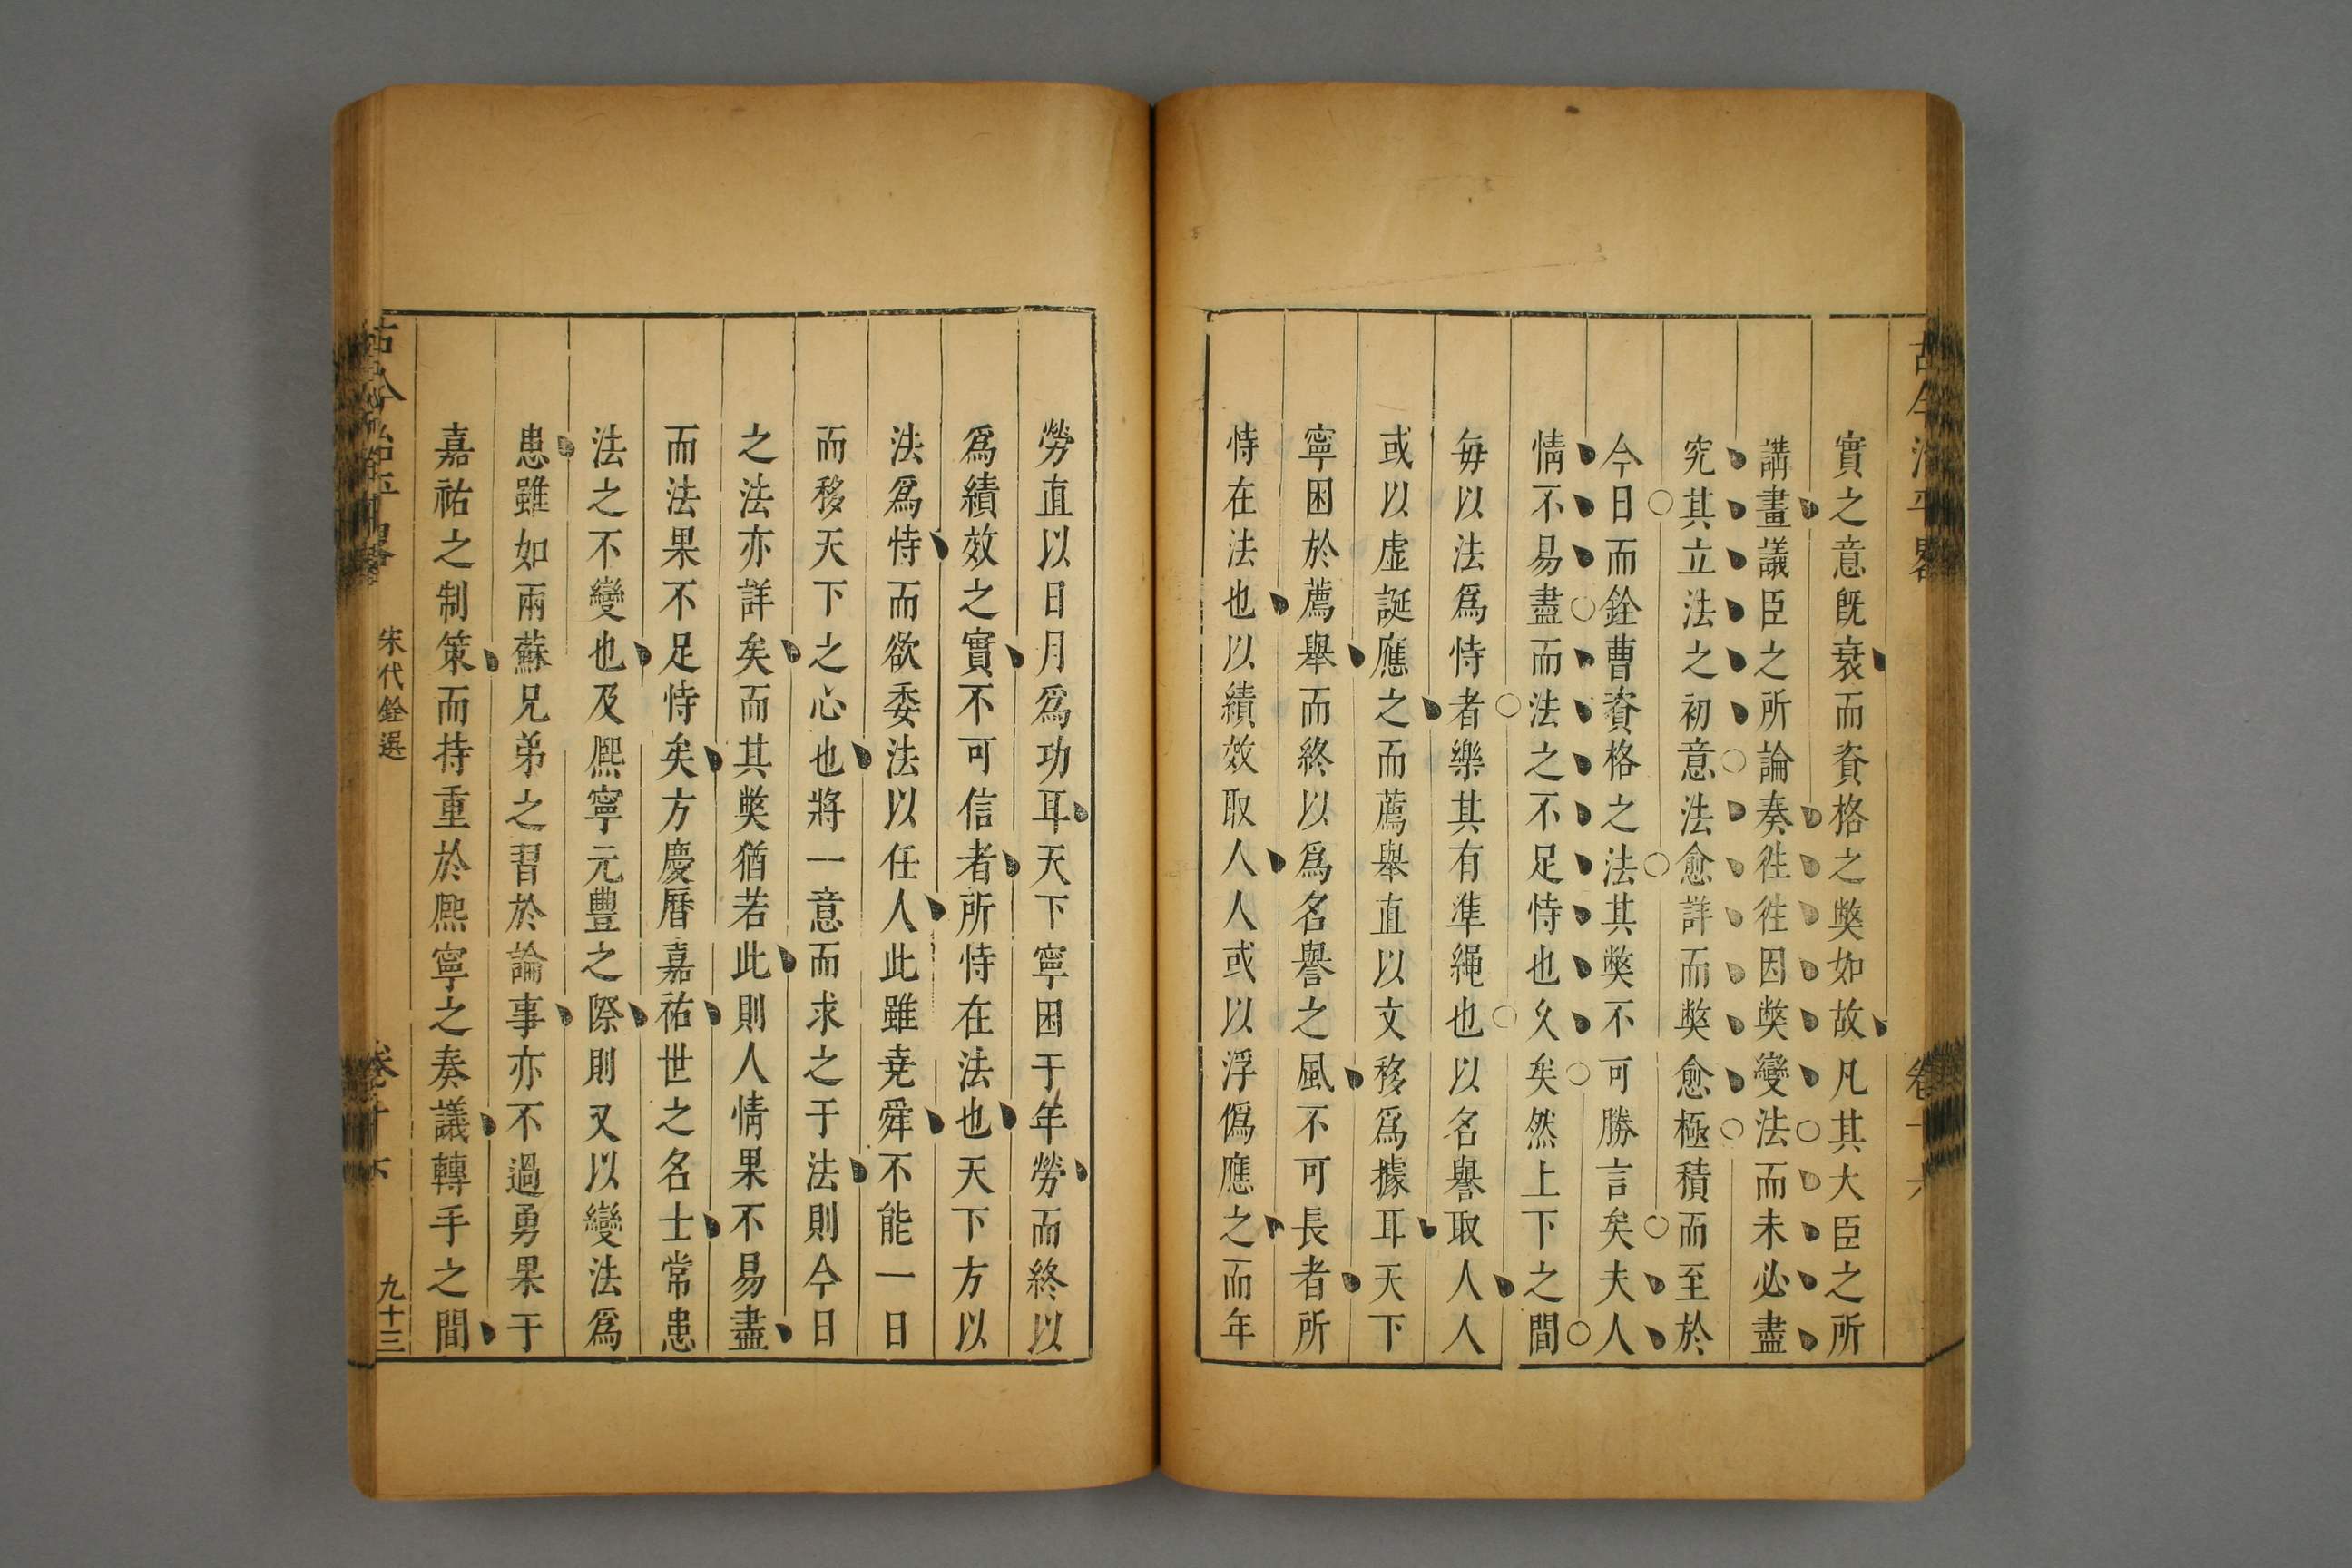 實之意旣衰而資格之獘如故凡其大臣之所
講畫議臣之所論奏徃徃因獘變法而未必盡
究其立法之初意法愈詳而獘愈極積而至於
今日而銓曹資格之法其獘不可勝言矣夫人
情不易盡而法之不足恃也久矣然上下之間
每以法爲恃者樂其有準繩也以名譽取人人
或以虛誕應之而薦舉直以文移爲據耳天下
寧困於薦舉而終以爲名譽之風不可長者所
恃在法也以績效取人人或以浮僞應之而年
勞直以日月爲功耳天下寧困于年勞而終以
爲績效之實不可信者所恃在法也天下方以
法爲恃而欲委法以任人此雖堯舜不能一日
而移天下之心也將一意而求之于法則今日
之法亦詳矣而其獘猶若此則人情果不易盡
而法果不足恃矣方慶曆嘉祐世之名士常患
法之不變也及熈寧元豐之際則又以變法爲
患雖如兩蘇兄弟之習於論事亦不過勇果于
嘉祐之制策而持重於熈寧之奏議轉手之間
古今治平畧
宋代銓選
卷十六
九十三